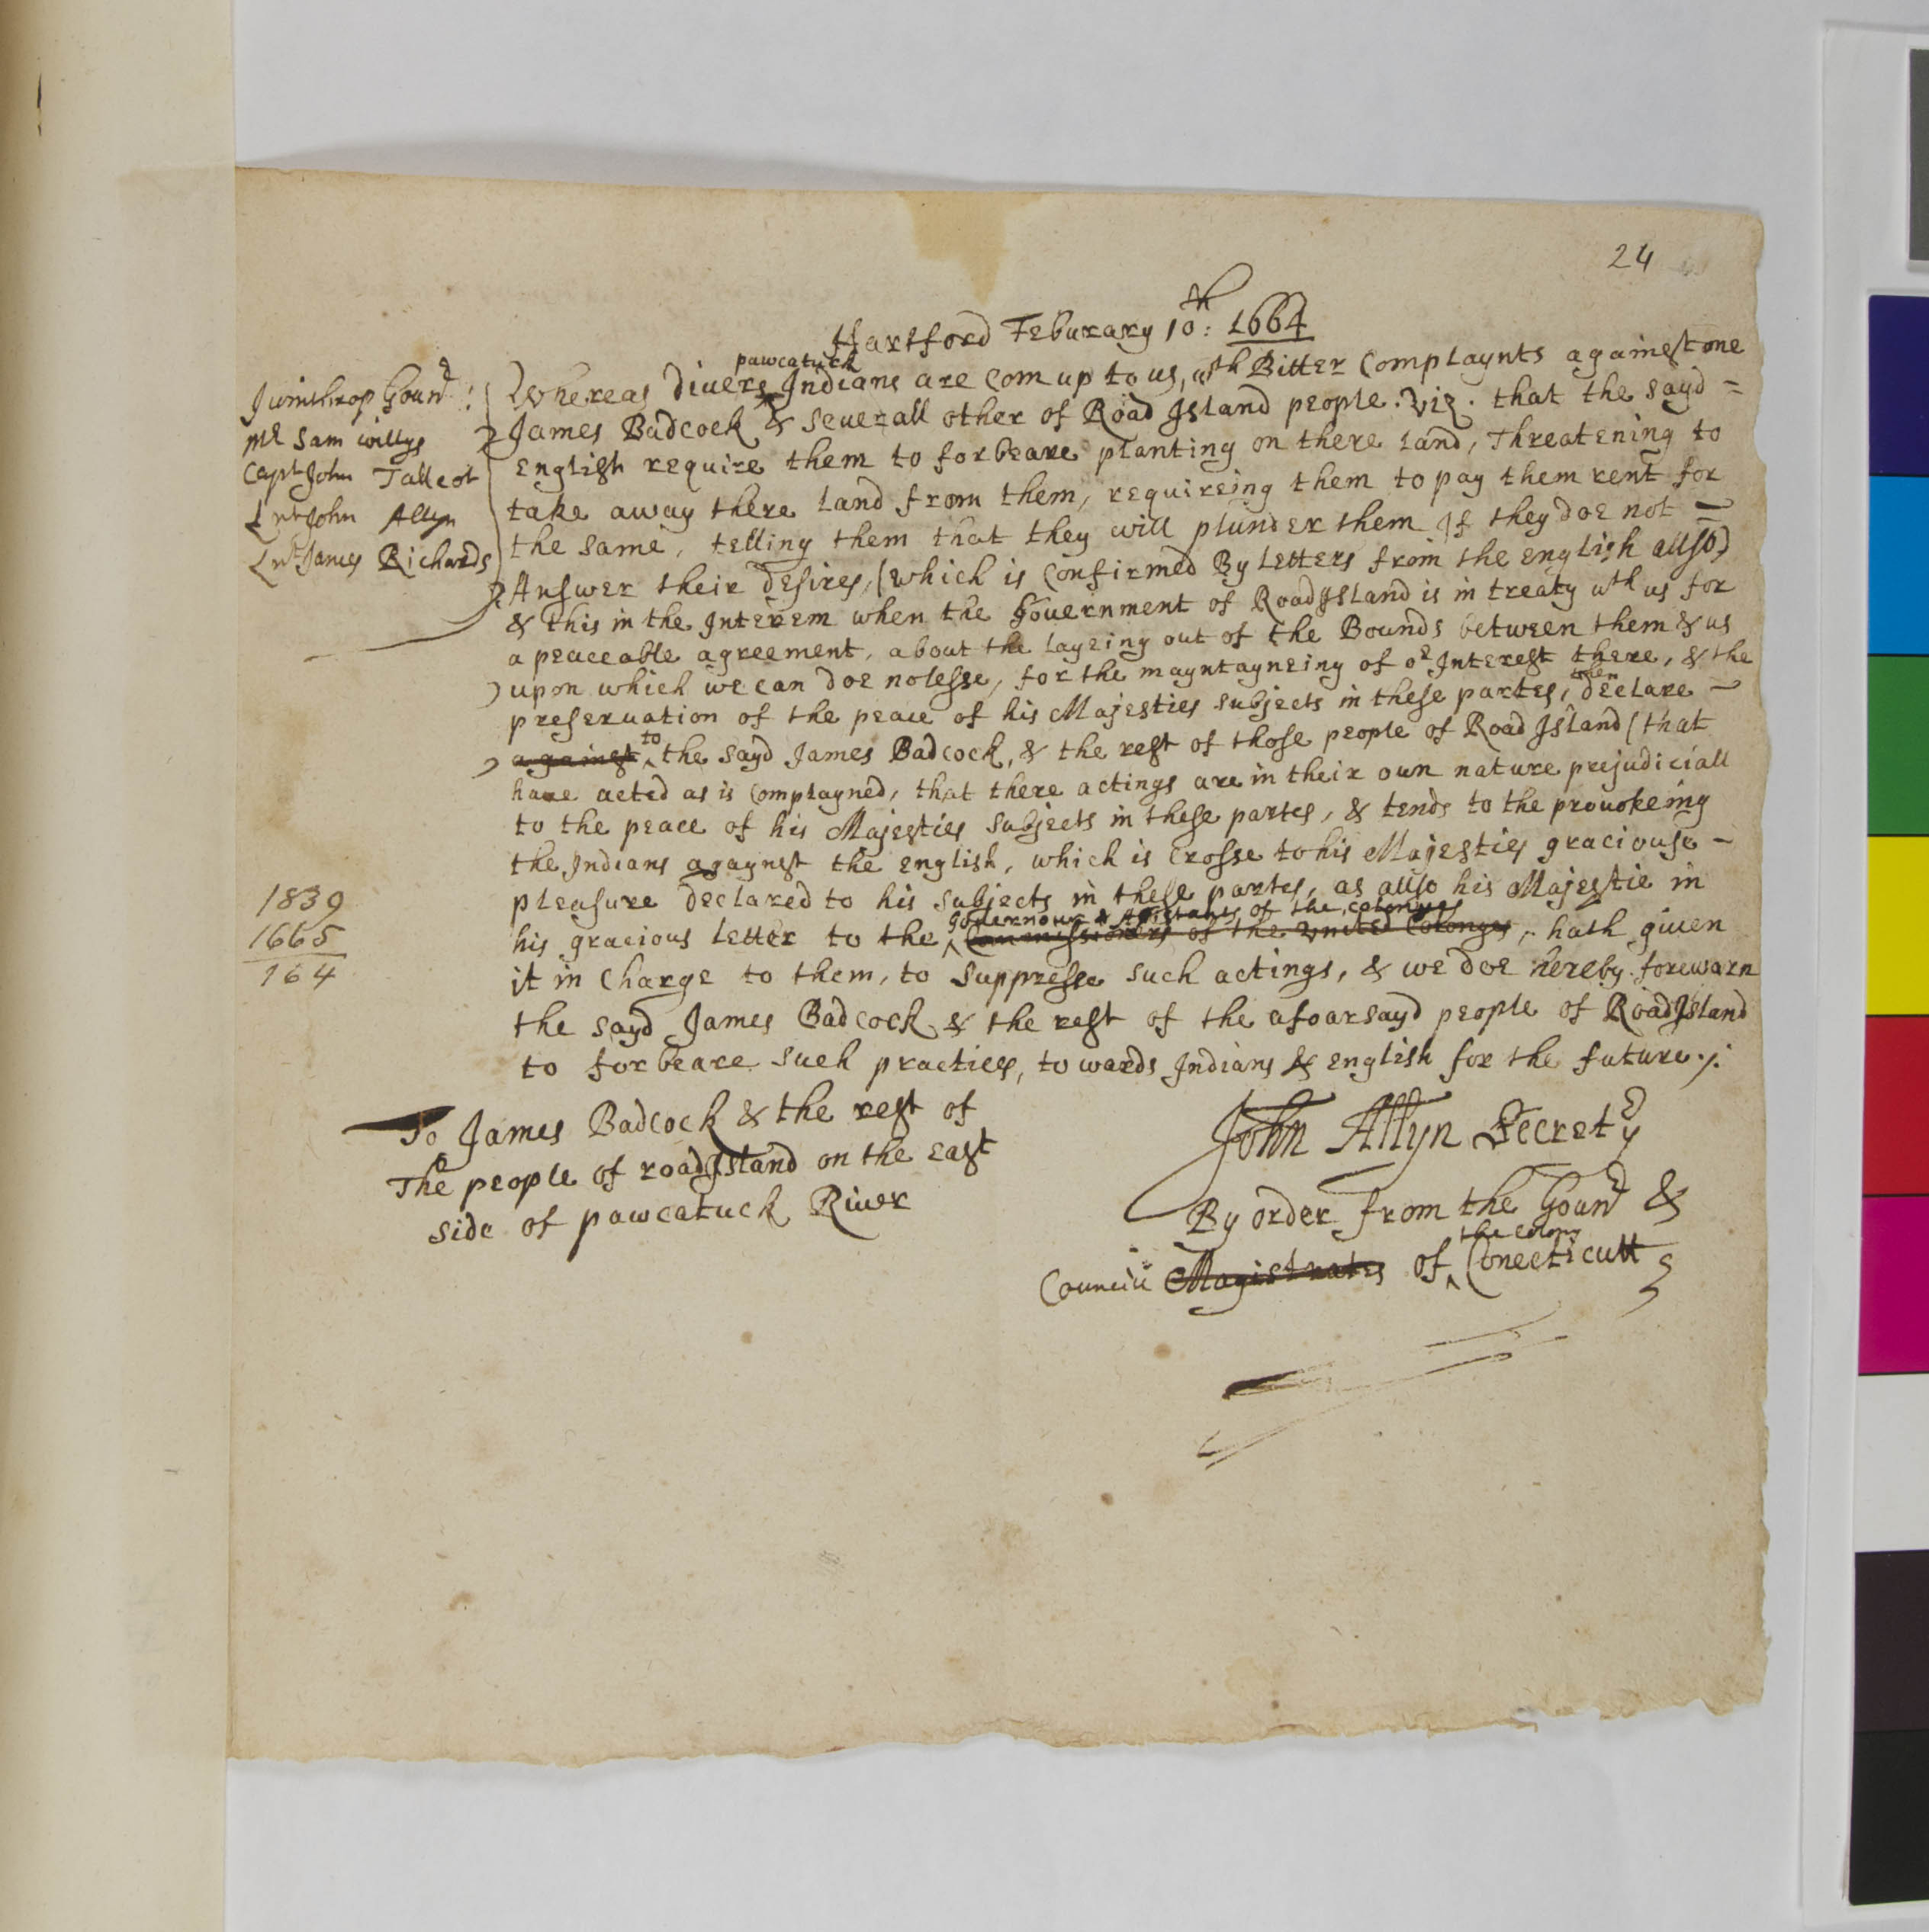 24
Hartford Feburary 10th: 1664
J winthrop Gounr:
mr Sam willys
Capt John Tallcot
Lnt John Allyn
Lnt James Richards
pawcatuck
Whereas divers Indians are com up to us, wth Bitter Complaynts against one
James Badcock & seuerall other of Road Island people. viz. that the sayd =
English require them to forbeare planting on there land, Threatening to
take away there land from them, requireing them to pay them rent for
the same, telling them that they will plunder them If they doe not –
Answer their desires, (which is Confirmed By letters from the english allso)
& this in the Interem when the Gouernment of Road Island is in treaty wth us for
a peaceable agreement, about the layeing out of the Bounds between them & us
upon which we can doe nolesse, for the mayntayneing of or Interest there, & the
preseruation of the peace of his Majesties subjects in these partes, then declare –
against to the sayd James Badcock, & the rest of those people of Road Island (that
haue acted as is Complayned, that there actings are in their own nature prejudiciall
to the peace of his Majesties subjects in these partes, & tends to the prouokeing
the Indians agaynst the english, which is Crosse to his Majesties graciouse –
pleasure declared to his subjects in these partes, as allso his Majestie in
Gouernour & Assistants of the colonyes
his gracious letter to the Commissioners of the United Colonyes, hath giuen
it in Charge to them, to suppresse such actings, & we doe hereby forewarn
the sayd James Badcock & the rest of the afoarsayd people of Road Island
to forbeare such practices, towards Indians & english for the future./.
1839
1665
164
To James Badcock & the rest of
The people of road Island on the east
side of pawcatuck Riuer
John Allyn Secrety
By order from the Gounr &
the colony
Councill Magistrates of Conecticutt